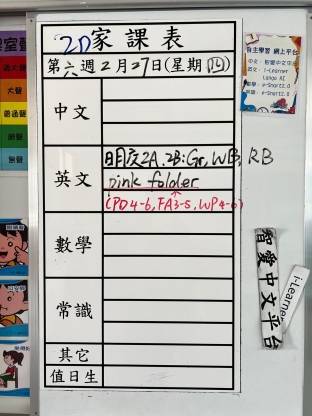 2D家課表
第六週2月27日(星期四)
中文
英文
明交2A, 2B: Gr, WB, RB
pink folder
(PD4-6, FA3-5, WP4-6)
數學
常識
其它
值日生
自主學習 網上平台
中文:智愛中文平台
英文:i-Learner
智愛中文平台
i-Learner